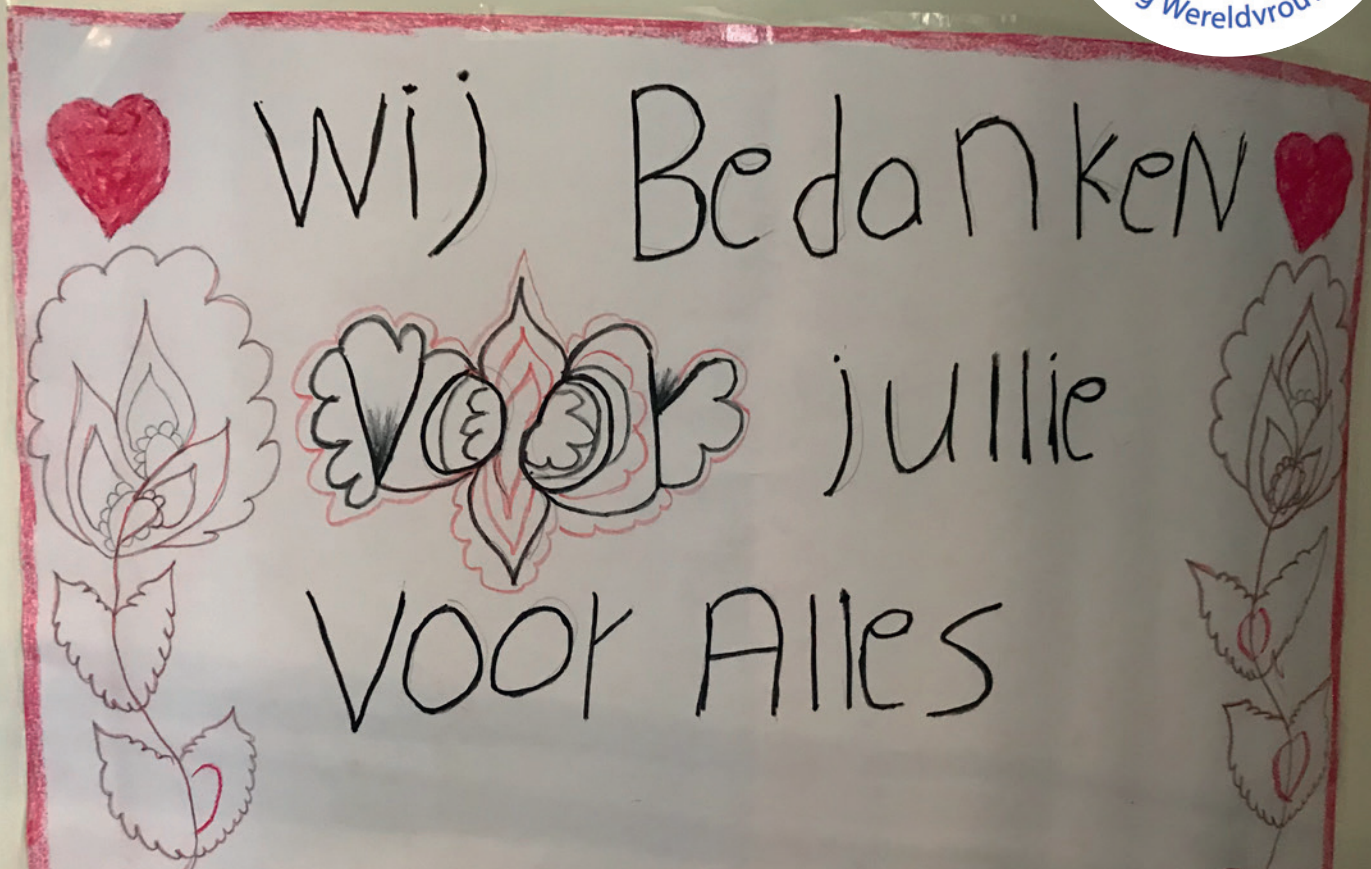 g Wereldvrou
Wij Bedanken
Voor jullie
Voor Alles